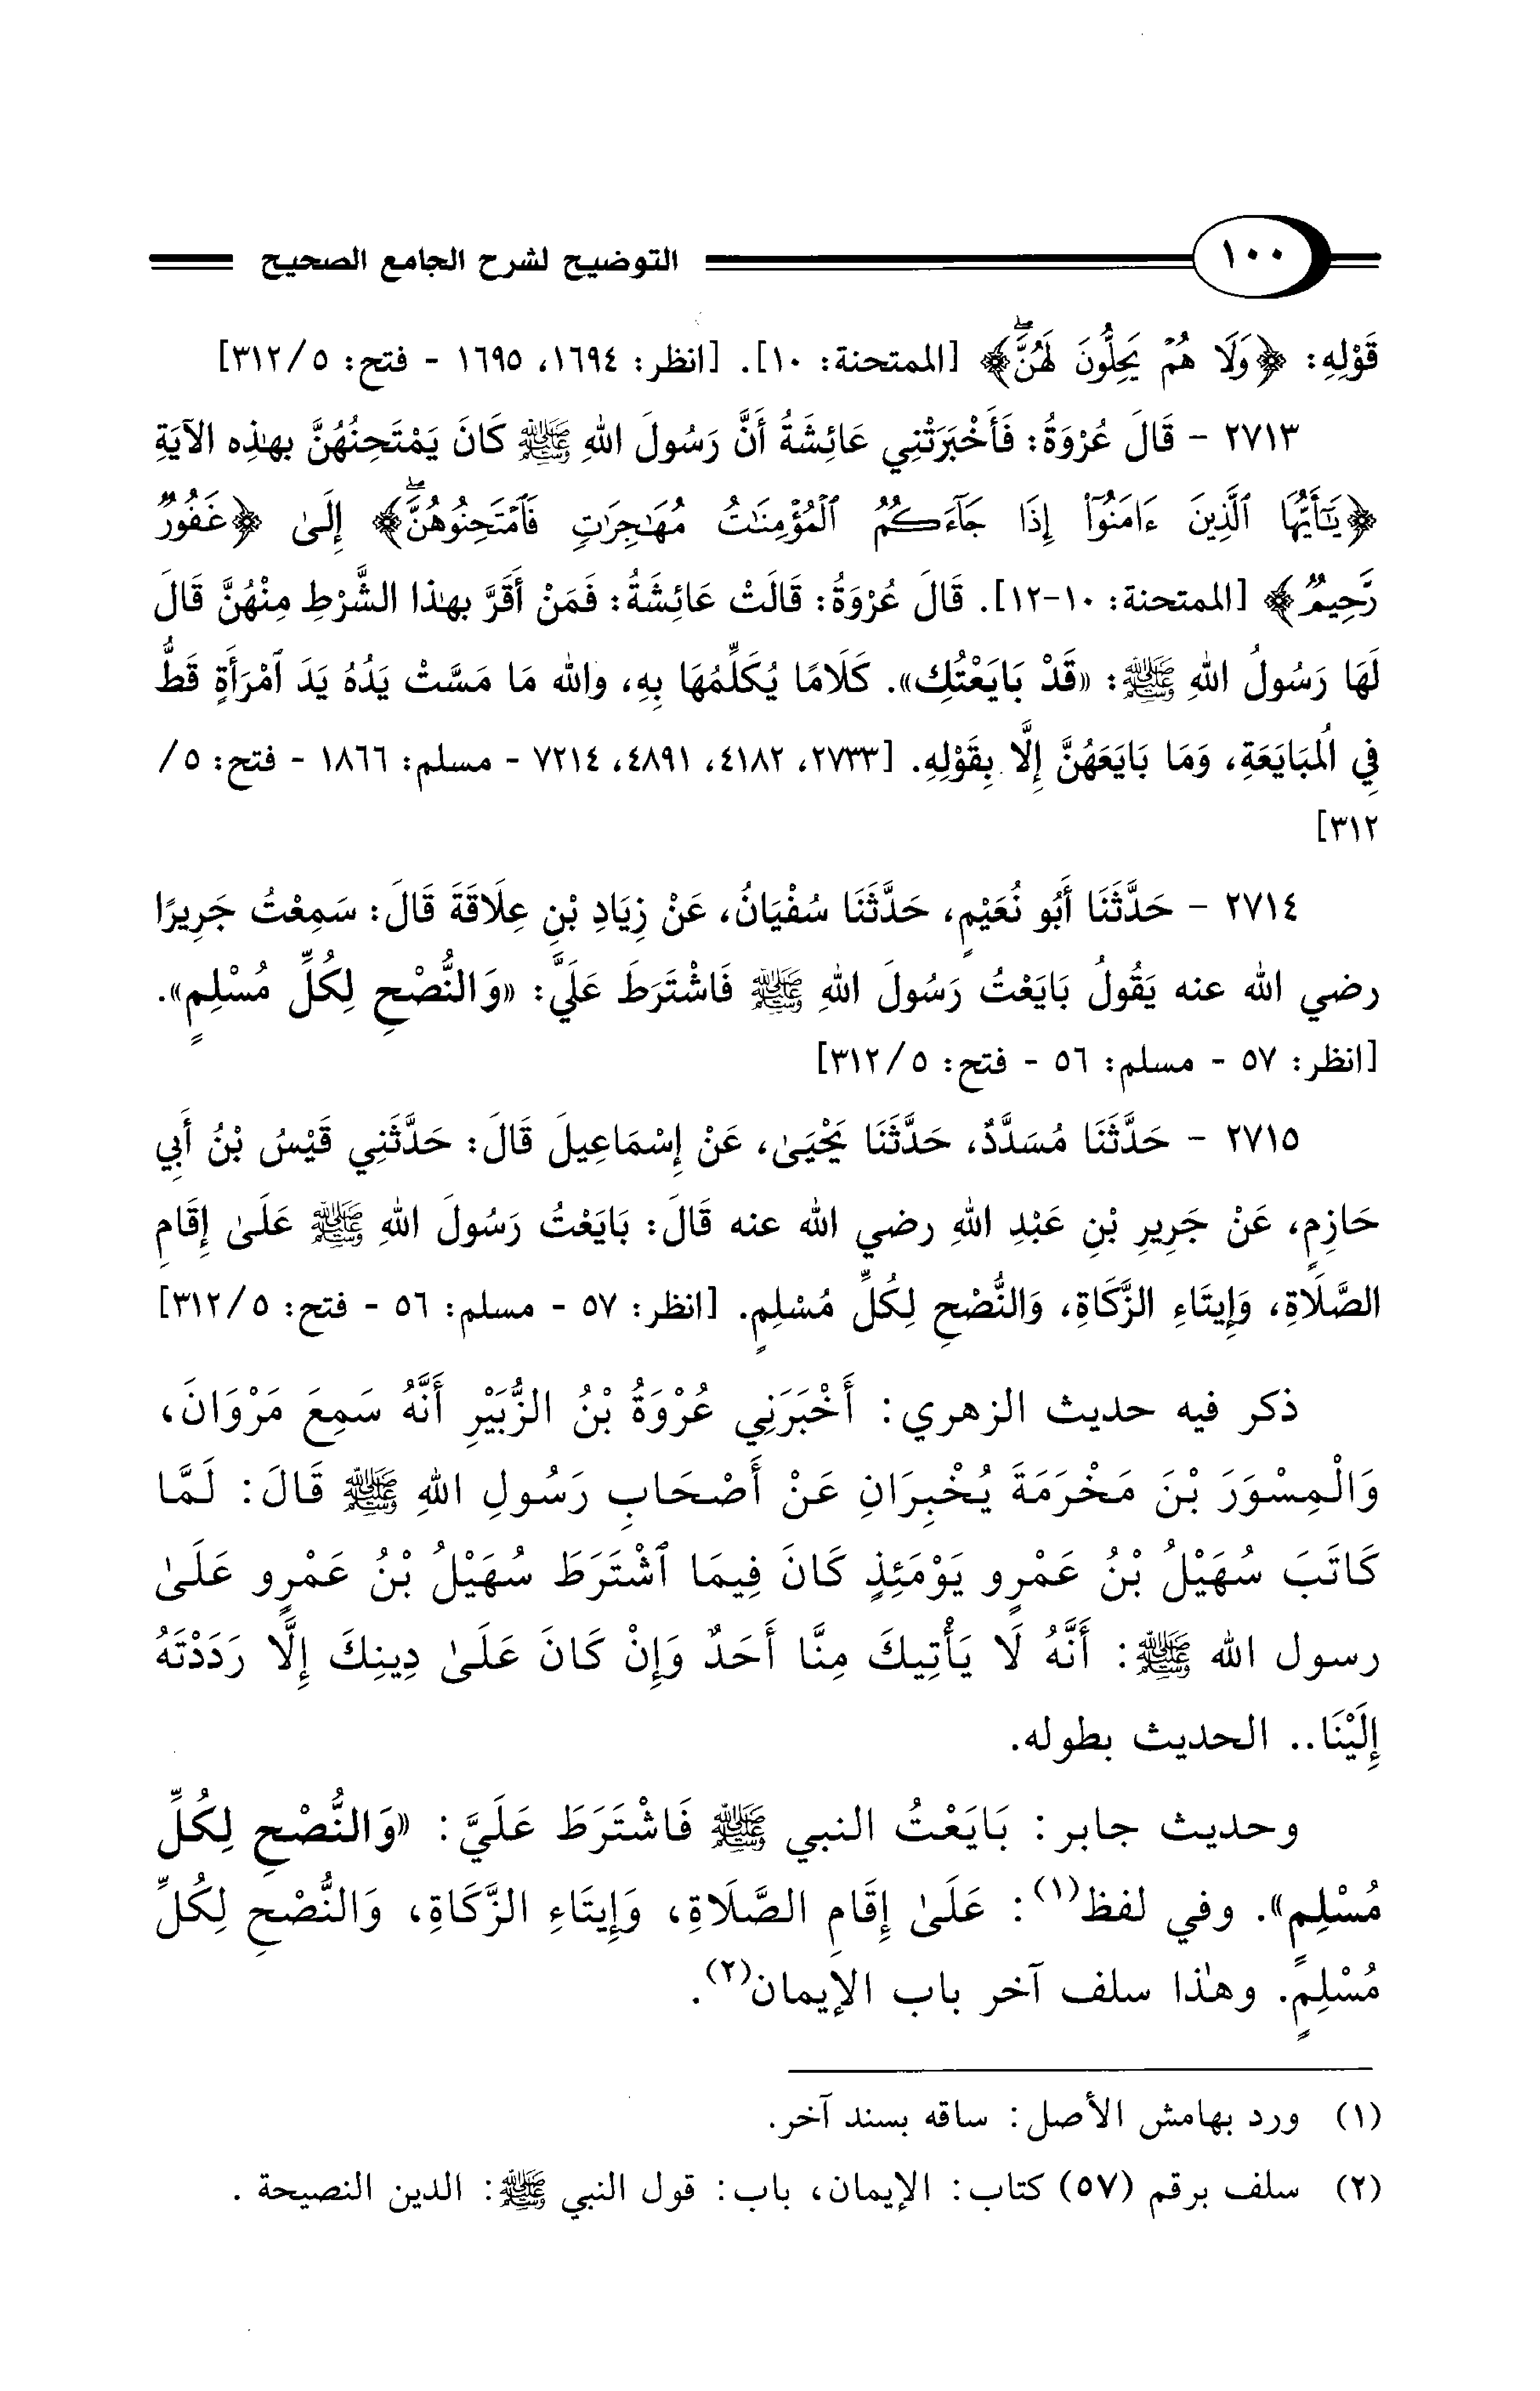 ١٠٠ التوضيح لشرح الجامع الصحيح
قَوْلِهِ: ﴿وَلَا هُمْ يَحِلُّونَ لَهُنَّ﴾ [الممتحنة: ١٠]. [انظر: ١٦٩٤، ١٦٩٥ - فتح: ٥/ ٣١٢]
٢٧١٣ - قَالَ عُرْوَةُ: فَأَخْبَرَتْنِي عَائِشَةُ أَنَّ رَسُولَ اللهِ ﷺ كَانَ يَمْتَحِنُهُنَّ بهٰذِه الآيَةِ
﴿يَٰٓأَيُّهَا ٱلَّذِينَ ءَامَنُوٓاْ إِذَا جَآءَكُمُ ٱلْمُؤْمِنَٰتُ مُهَٰجِرَٰتٍ فَٱمْتَحِنُوهُنَّ﴾ إِلَىٰ ﴿غَفُورٌ
رَّحِيمٌ﴾ [الممتحنة: ١٠-١٢]. قَالَ عُرْوَةُ: قَالَتْ عَائِشَةُ: فَمَنْ أَقَرَّ بهٰذا الشَّرْطِ مِنْهُنَّ قَالَ
لَهَا رَسُولُ اللهِ ﷺ: «قَدْ بَايَعْتُكِ». كَلَامًا يُكَلِّمُهَا بِهِ، والله مَا مَسَّتْ يَدُهُ يَدَ ٱمْرَأَةٍ قَطُّ
فِي الُمبَايَعَةِ، وَمَا بَايَعَهُنَّ إِلَّا بِقَوْلِهِ. [٢٧٣٣، ٤١٨٢، ٤٨٩١، ٧٢١٤ - مسلم: ١٨٦٦ - فتح: ٥/
٣١٢]
٢٧١٤ - حَدَّثَنَا أَبُو نُعَيْمٍ، حَدَّثَنَا سُفْيَانُ، عَنْ زِيَادِ بْنِ عِلَاقَةَ قَالَ: سَمِعْتُ جَرِيرًا
رضي الله عنه يَقُولُ بَايَعْتُ رَسُولَ اللهِ ﷺ فَاشْتَرَطَ عَلَيَّ: «وَالنُّصْحِ لِكُلِّ مُسْلِمٍ».
[انظر: ٥٧ - مسلم: ٥٦ - فتح: ٥/ ٣١٢]
٢٧١٥ - حَدَّثَنَا مُسَدَّدٌ، حَدَّثَنَا يَحْيَىٰ، عَنْ إِسْمَاعِيلَ قَالَ: حَدَّثَنِي قَيْسُ بْنُ أَبِي
حَازِمٍ، عَنْ جَرِيرِ بْنِ عَبْدِ اللهِ رضي الله عنه قَالَ: بَايَعْتُ رَسُولَ اللهِ ﷺ عَلَىٰ إِقَامِ
الصَّلَاةِ، وَإِيتَاءِ الزَّكَاةِ، وَالنُّصْحِ لِكُلِّ مُسْلِمٍ. [انظر: ٥٧ - مسلم: ٥٦ - فتح: ٥/ ٣١٢]
ذكر فيه حديث الزهري: أَخْبَرَنِي عُرْوَةُ بْنُ الزُّبَيْرِ أَنَّهُ سَمِعَ مَرْوَانَ،
وَالْمِسْوَرَ بْنَ مَخْرَمَةَ يُخْبِرَانِ عَنْ أَصْحَابِ رَسُولِ اللهِ ﷺ قَالَ: لَمَّا
كَاتَبَ سُهَيْلُ بْنُ عَمْرٍو يَوْمَئِذٍ كَانَ فِيمَا ٱشْتَرَطَ سُهَيْلُ بْنُ عَمْرٍو عَلَىٰ
رسول الله ﷺ: أَنَّهُ لَا يَأْتِيكَ مِنَّا أَحَدٌ وَإِنْ كَانَ عَلَىٰ دِينِكَ إِلَّا رَدَدْتَهُ
إِلَيْنَا.. الحديث بطوله.
وحديث جابر: بَايَعْتُ النبي ﷺ فَاشْتَرَطَ عَلَيَّ: «وَالنُّصْحِ لِكُلِّ
مُسْلِمٍ». وفي لفظ(١): عَلَىٰ إِقَامِ الصَّلَاةِ، وَإِيتَاءِ الزَّكَاةِ، وَالنُّصْحِ لِكُلِّ
مُسْلِمٍ. وهٰذا سلف آخر باب الإيمان(٢).
(١) ورد بهامش الأصل: ساقه بسند آخر.
(٢) سلف برقم (٥٧) كتاب: الإيمان، باب: قول النبي ﷺ: الدين النصيحة .